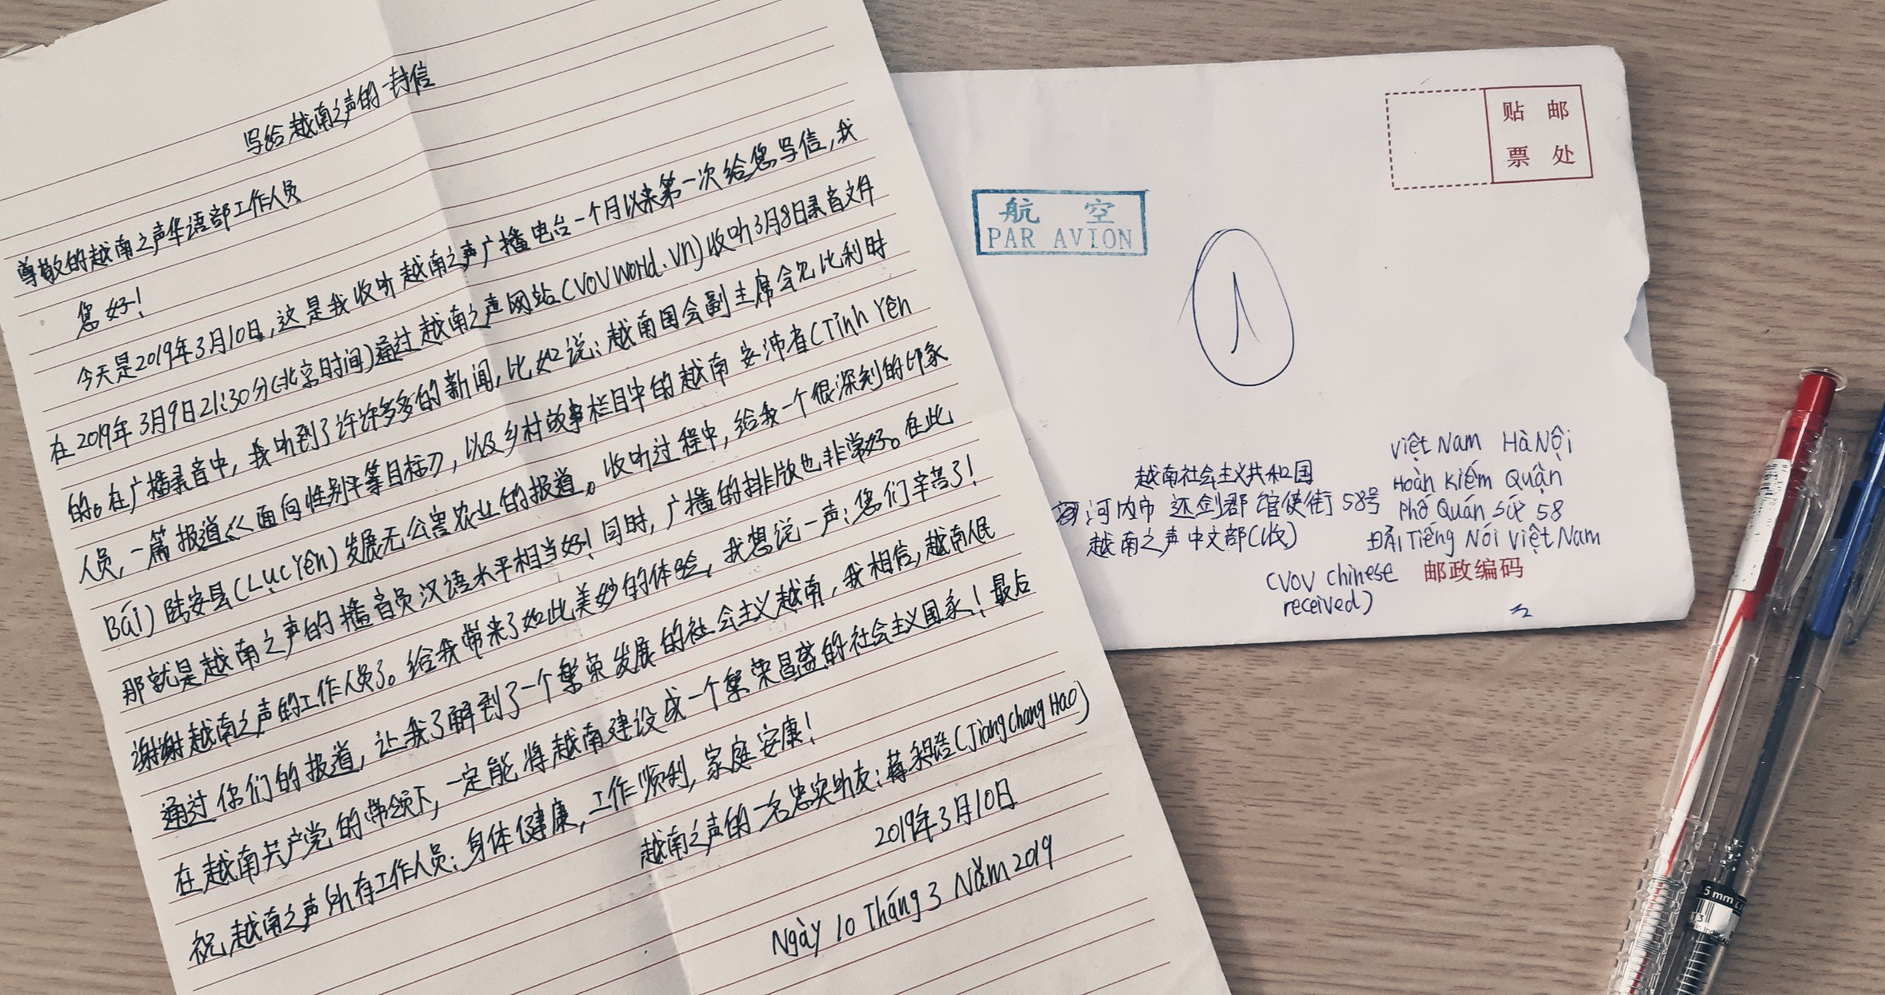 写给越南之声的一封信
尊敬的越南之声华语部工作人员
您好!
今天是2019年3月10日,这是我收听越南之声广播电台一个月以来第一次给您写信,我
在2019年3月9日21:30分(北京时间)通过越南之声网站(VOVworld.vn)收听3月8日录音文件
的。在广播录音中,我听到了许许多多的新闻,比如说:越南国会副主席会见比利时
人员,一篇报道《面向性别平等目标》,以及乡村故事栏目中的越南安沛省(Tỉnh Yên
Bái)陆安县(Lục Yên)发展无公害农业的报道。收听过程中,给我一个很深刻的印象
那就是越南之声的播音员汉语水平相当好!同时,广播的排版也非常好。在此
谢谢越南之声的工作人员了。给我带来了如此美妙的体验,我想说一声:您们辛苦了!
通过你们的报道,让我了解到了一个繁荣发展的社会主义越南,我相信,越南人民
在越南共产党的带领下,一定能将越南建设成一个繁荣昌盛的社会主义国家!最后
祝越南之声所有工作人员:身体健康,工作顺利,家庭安康!
越南之声的一名忠实听友:蒋昶浩(Jiang Chang Hao)
2019年3月10日
Ngày 10 Tháng 3 Năm 2019
贴 邮
票 处
航 空
PAR AVION
越南社会主义共和国
河内市 还剑郡 馆使街 58号
越南之声中文部(收)
Việt Nam Hà Nội
Hoàn Kiếm Quận
Phố Quán Sứ 58
Đài Tiếng Nói Việt Nam
(VOV Chinese
received)
邮政编码